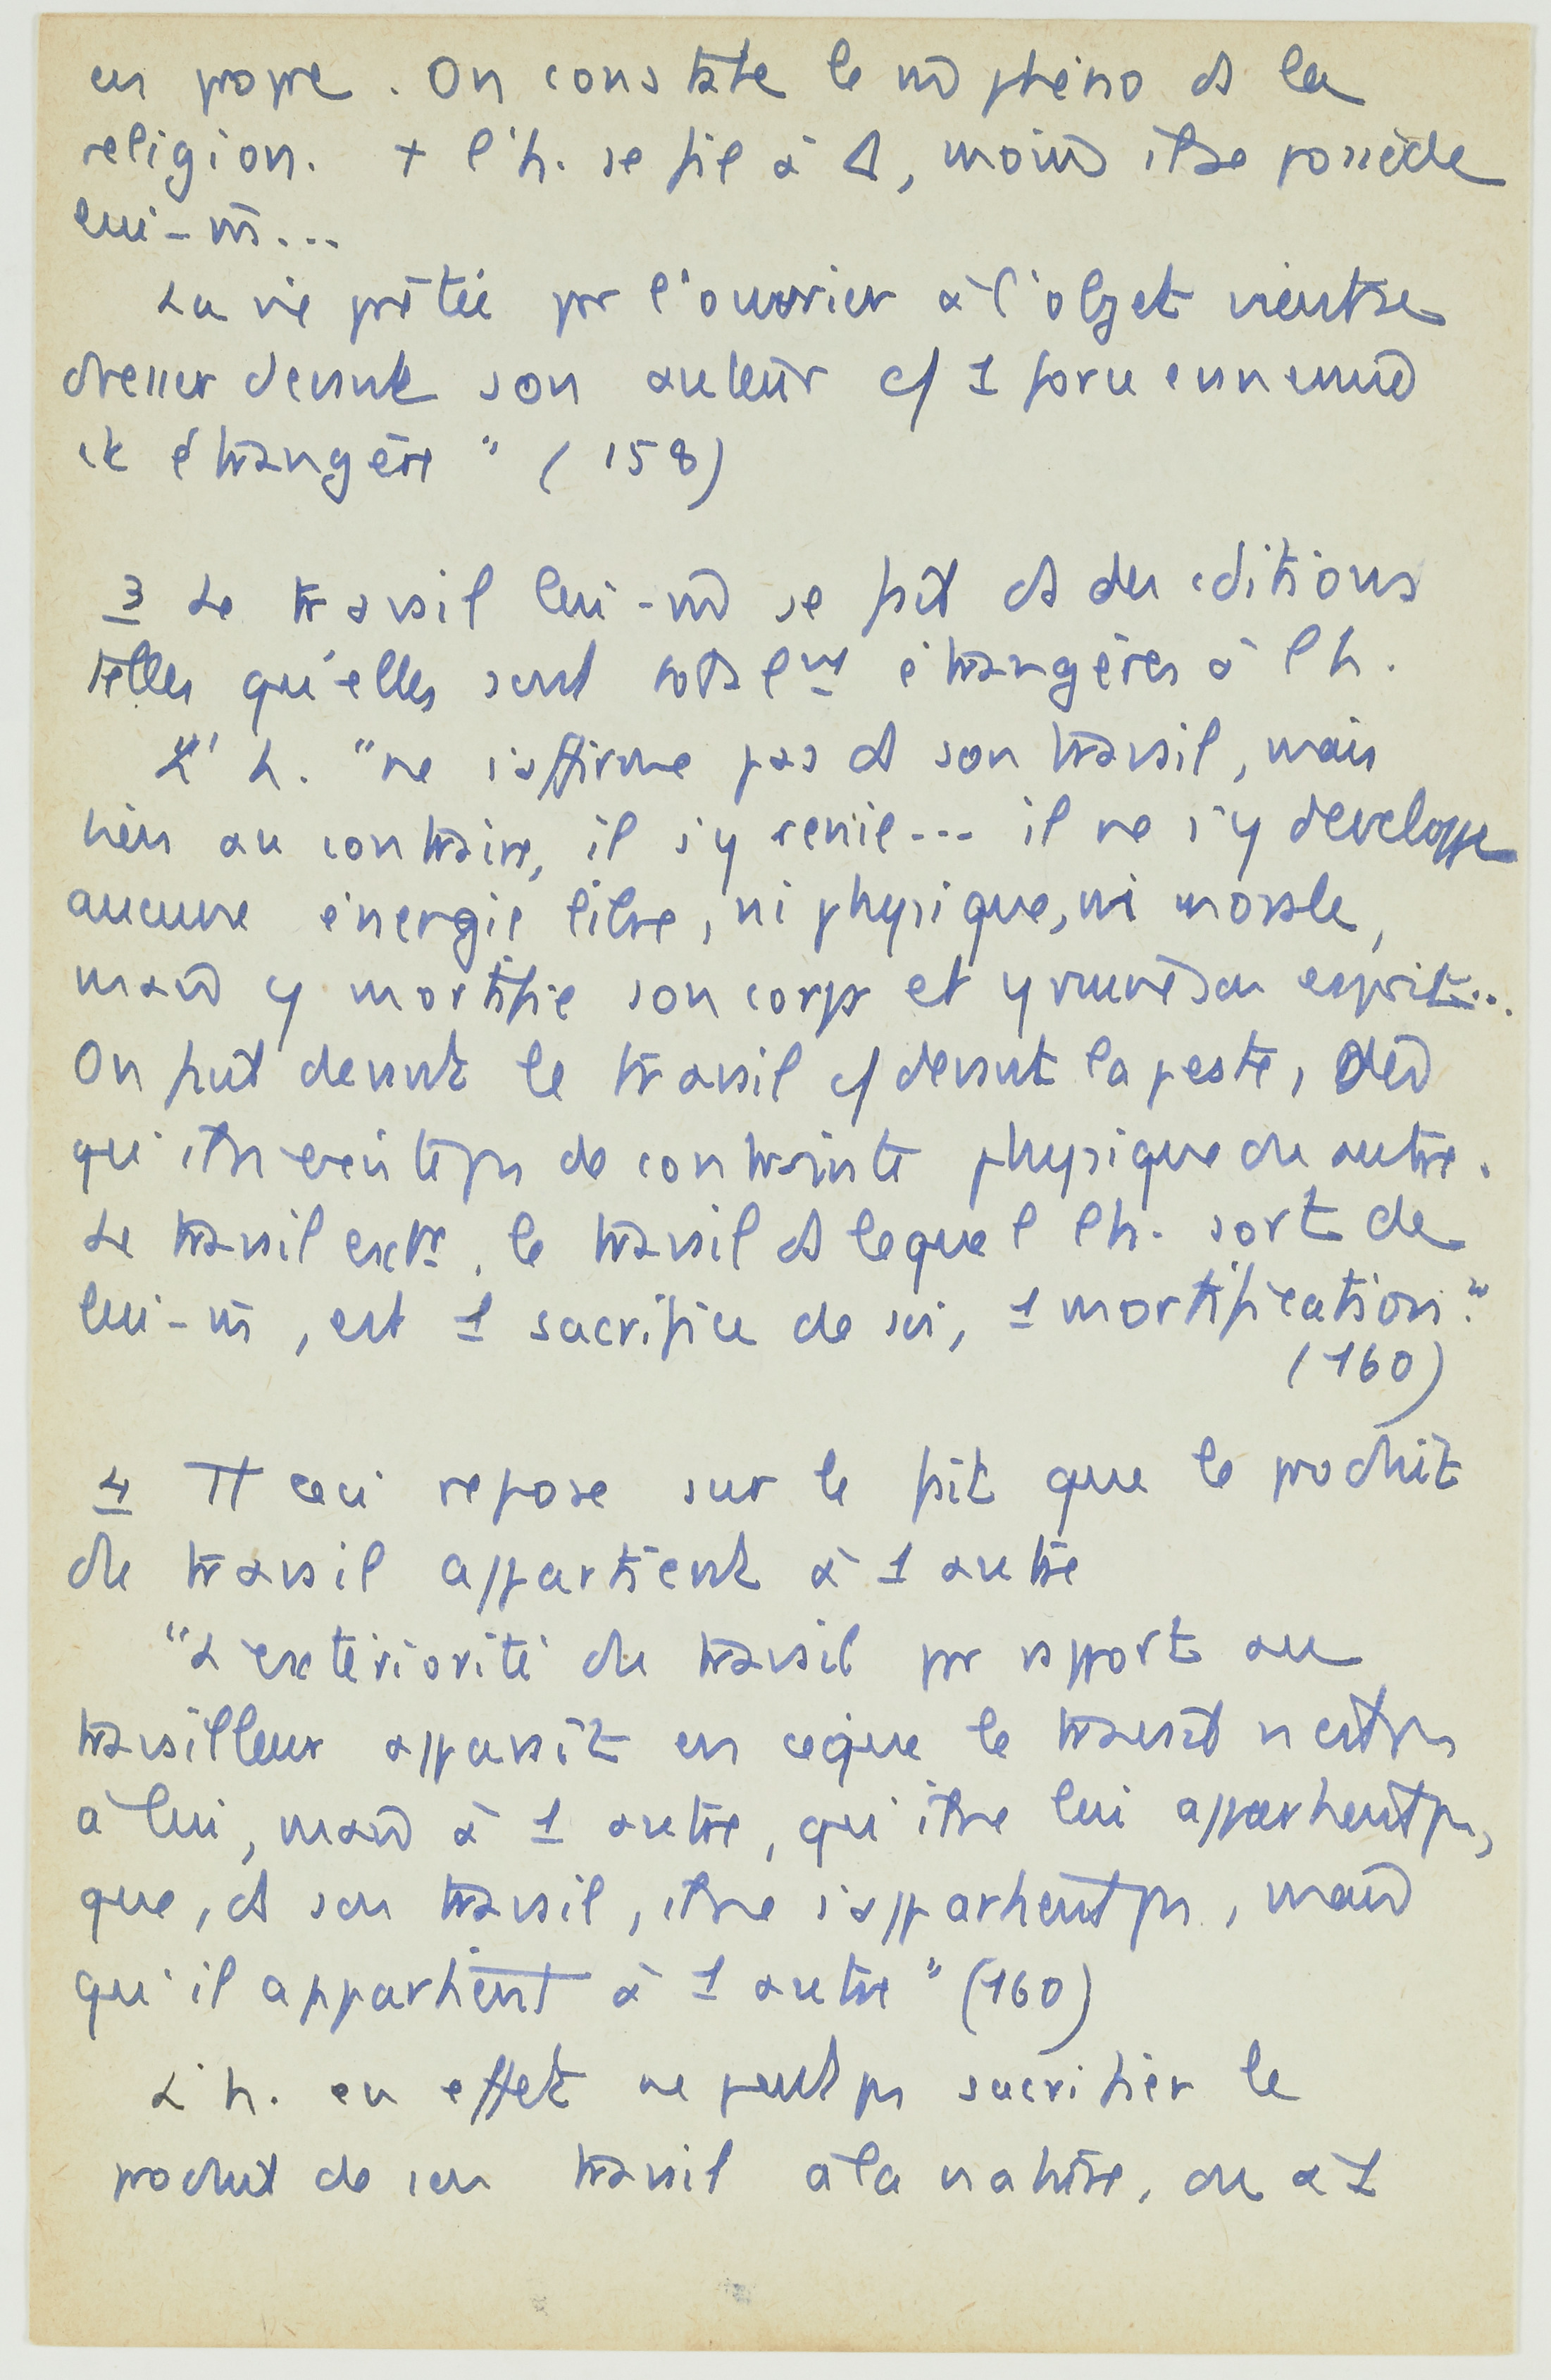 en propre. On constate le m̄ phéno ds la
religion. + l'h. se fie à Δ, moins il se possède
lui-m̄...
La vie prêtée par l'ouvrier à l'objet vient se
dresser devant son auteur c/ 1 force ennemie
et étrangère" (158)
3 Le travail lui-m̄ se fait ds des cditions
telles qu'elles sont totalemt étrangères à l'h.
L'h. "ne s'affirme pas ds son travail, mais
bien au contraire, il s'y renie... il ne s'y développe
aucune énergie libre, ni physique, ni morale,
mais y mortifie son corps et y ruine son esprit...
On fuit devant le travail c/ devant la peste, dès
qu'il n'existe pas de contrainte physique ou autre.
Le travail extr, le travail ds lequel l'h. sort de
lui-m̄, est 1 sacrifice de soi, 1 mortification."
(160)
4 Tt ceci repose sur le fait que le produit
du travail appartient à 1 autre
"L'extériorité du travail par rapport au
travailleur apparaît en ce que le travail n'est pas
à lui, mais à 1 autre, qu'il ne lui appartient pas,
que, ds son travail, il ne s'appartient pas, mais
qu'il appartient à 1 autre" (160)
L'h. en effet ne peut pas sacrifier le
produit de son travail à la nature, ou à 1